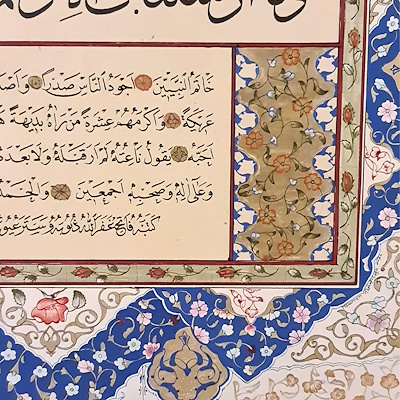 خَاتَمُ النَّبِيِّينَ اَجْوَدُ النَّاسِ صَدْرًا
عَرِيكَةً وَاَكْرَمُهُمْ عِشْرَةً مَنْ رَاٰهُ بَدِيهَةً
اَحَبَّهُ يَقُولُ نَاعِتُهُ لَمْ اَرَ قَبْلَهُ وَلَا بَعْدَهُ
وَعَلٰى اٰلِهِ وَصَحْبِهِ اَجْمَعِينَ وَالْحَمْدُ
كتبه فاتح غفر الله ذنوبه وستر عيوبه